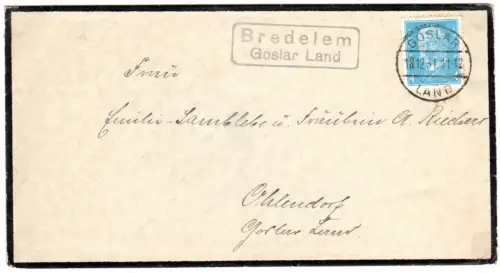 Bredelem
Goslar Land
GOSLAR
LAND
Frau
Emilie Samblebe u. Fräulein A. Riechers
Ohlendorf
Goslar Land.